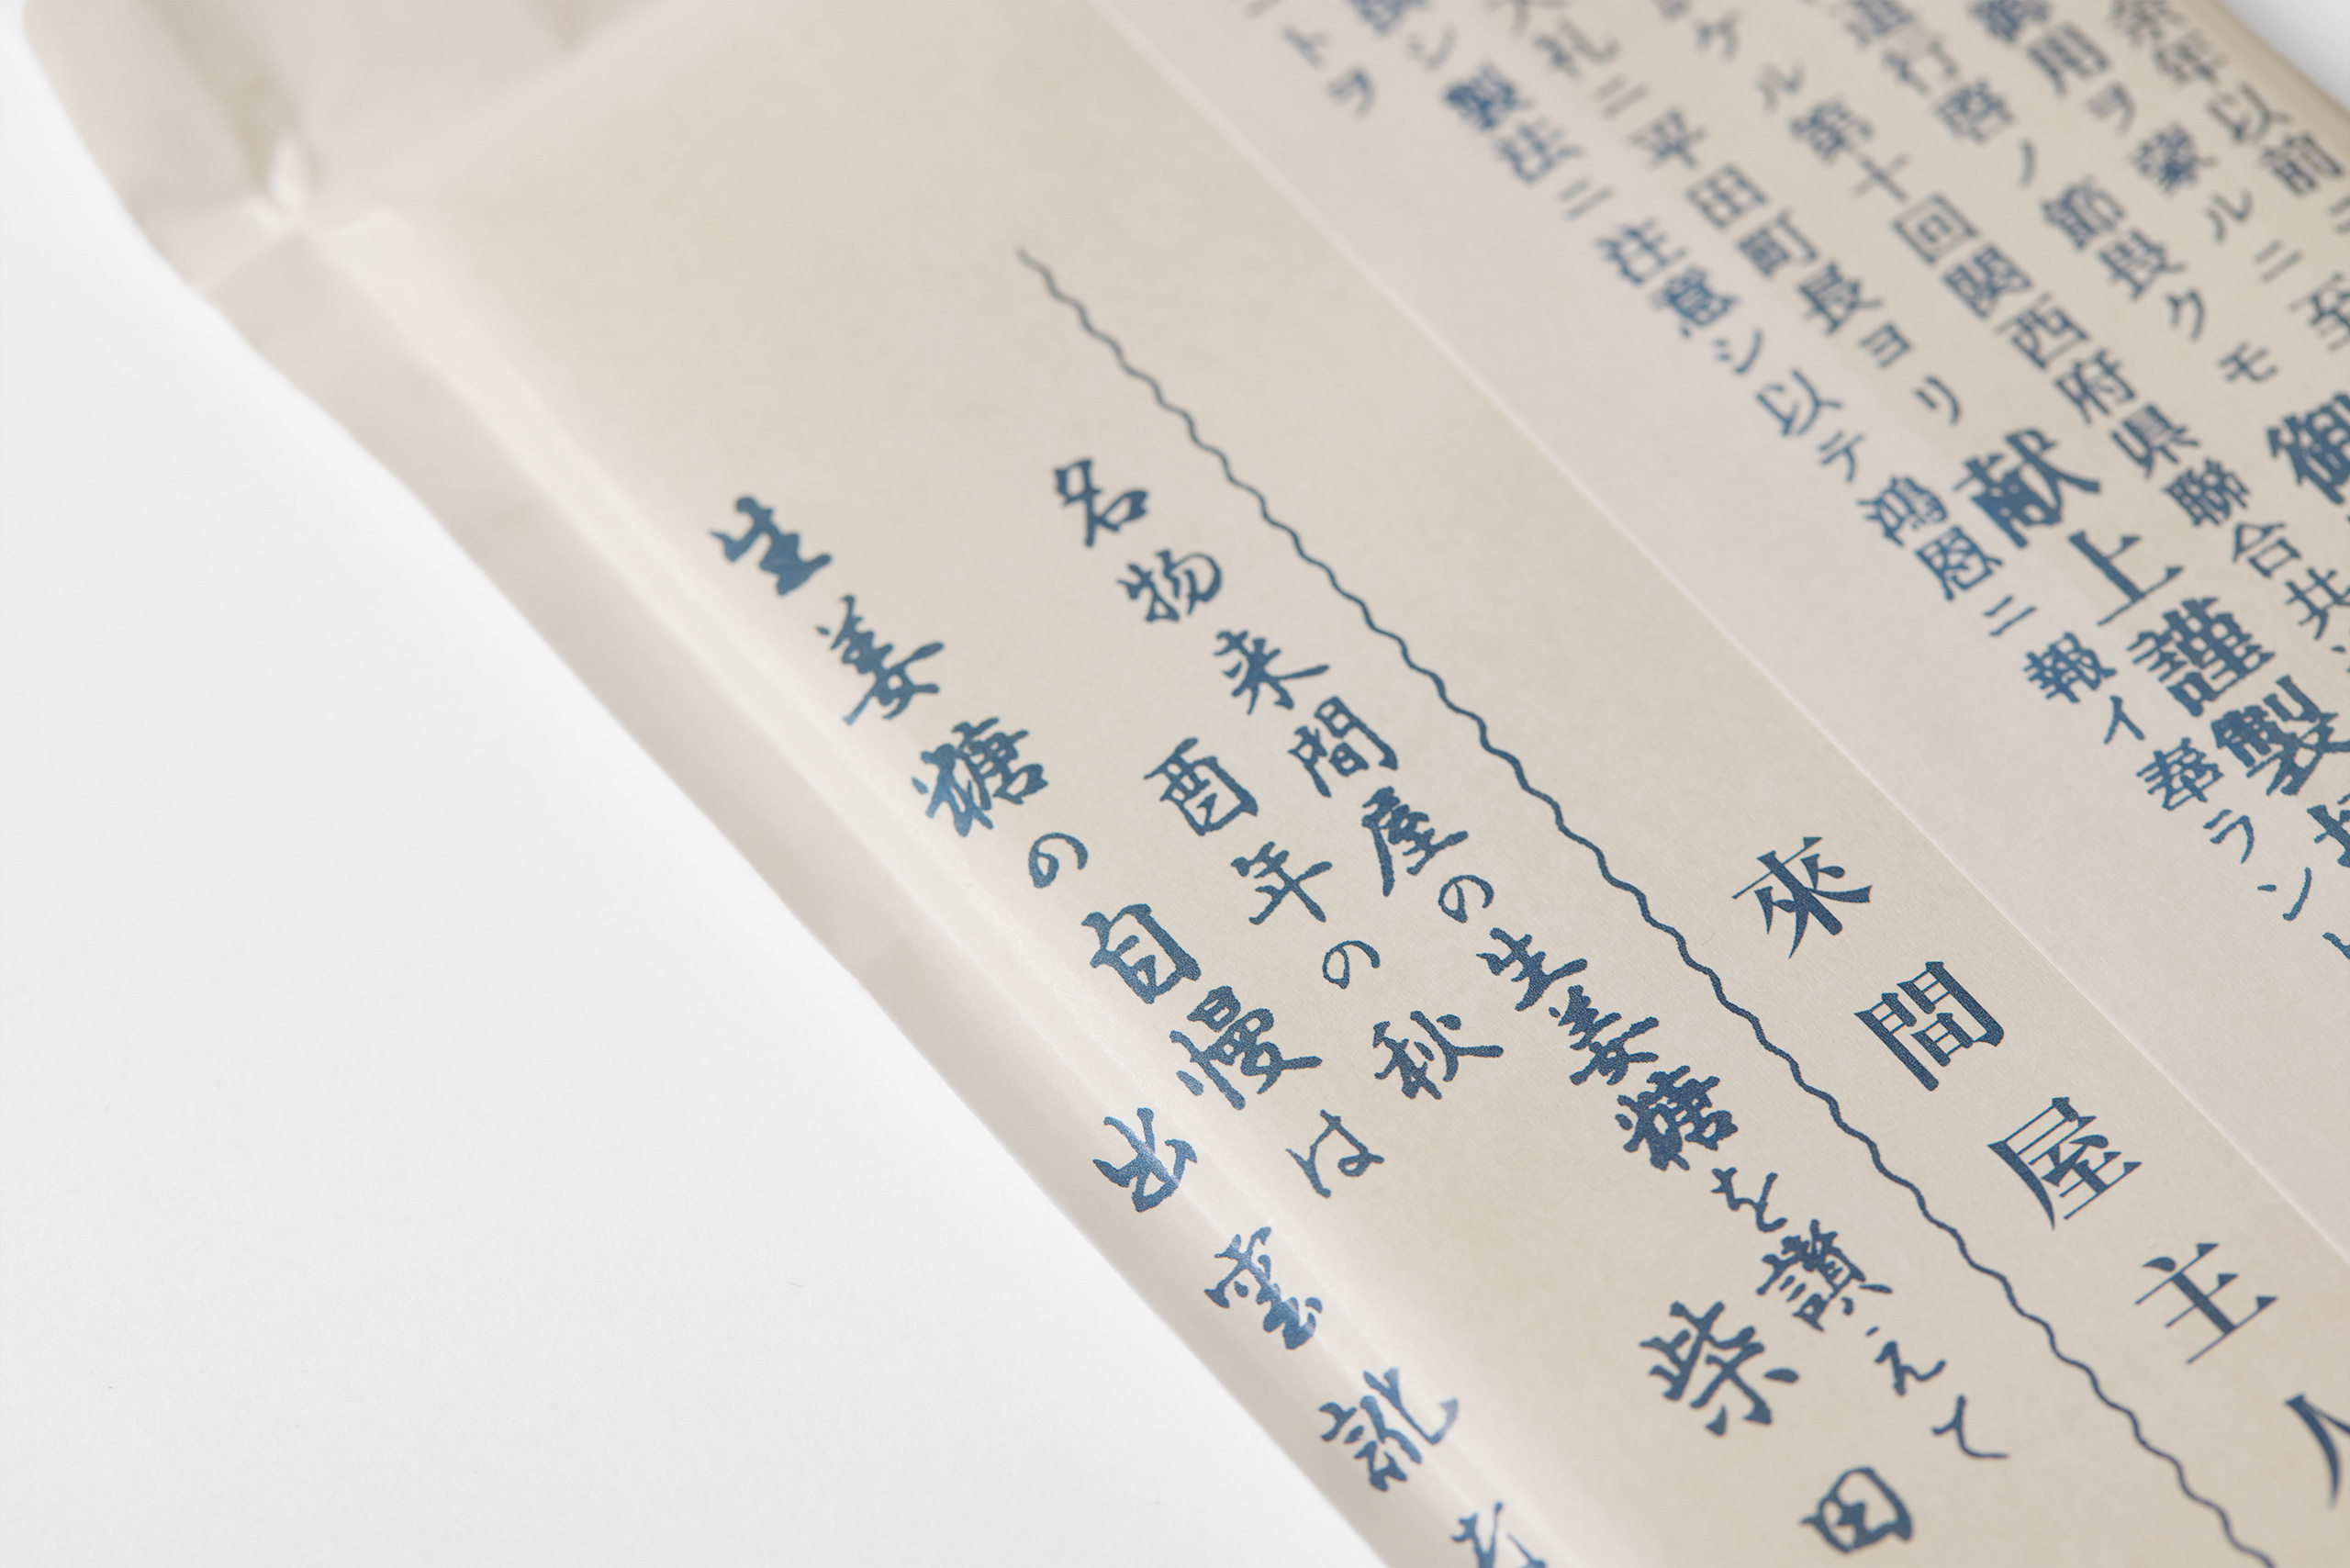 余年以前ニ
用ヲ蒙ルニ至
行啓ノ節畏クモ御
ケル第十回関西府県聯合共
礼ニ平田町長ヨリ献上謹製
シ製法ニ注意シ以テ鴻恩ニ報イ奉ラント
トヲ
來間屋主人
名物来間屋の生姜糖を讃えて
酉年の秋 柴田
生姜糖の自慢は
出雲訛な